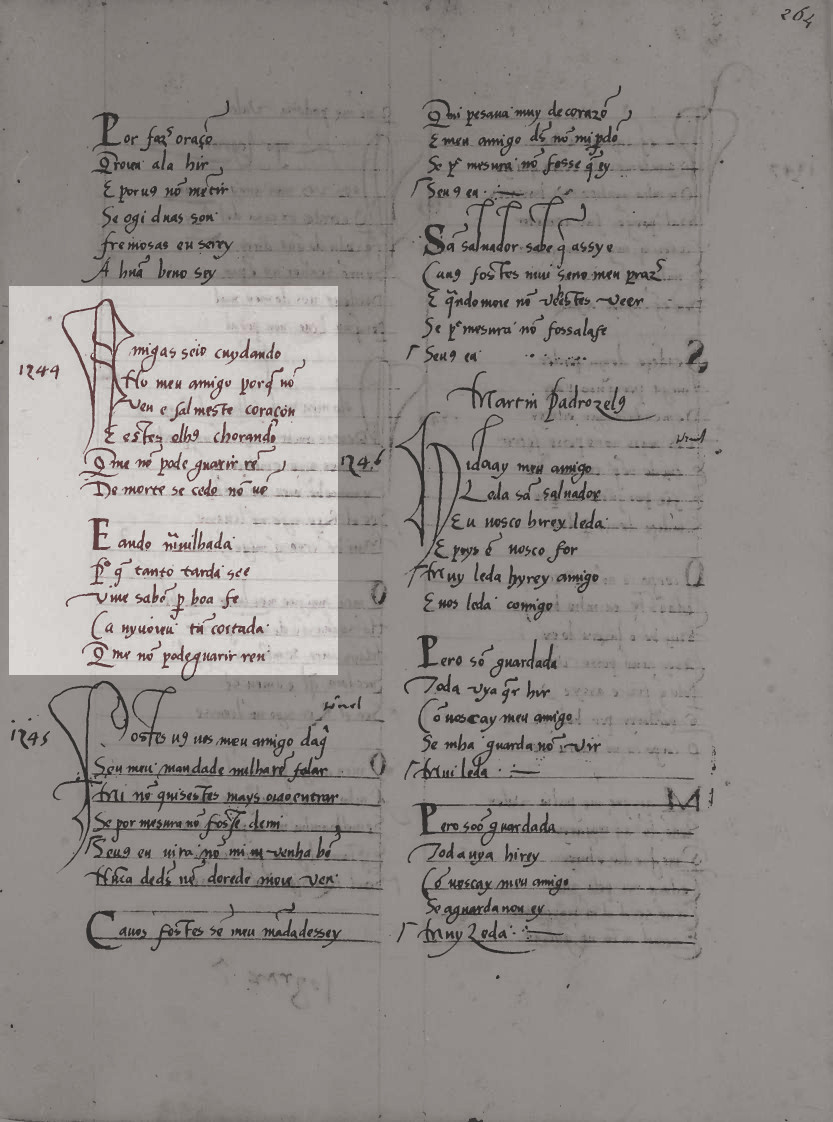 264
Por faz̃ oraçõ
Trouxi ala hir
E por uꝯ nõ mẽtir
Se ogi duas son
fremosas eu serey
A hũa beno sey
1244
Amigas seio cuydando
No meu amigo por q̃ nõ
Ven e sal meste coraçon
E estes olhꝯ chorando
Q̃ me nõ pode guarir rẽ
De morte se cedo nõ uẽ
E ando mãuilhada
P̃ q̃ tanto tarda see
Viue sabẽ ꝑ boa fe
Ca
Q̃ me nõ pode guarir ren
1245
Fostes uꝯ uos meu amigo daq̃
Seu meu mandade
nõ quisestes mays
Se por mesura nõ fosse demi
Seuꝯ eu uira nõ mi venha bẽ
Nũca dedꝯ nẽ
Ca uos fostes sẽ meu mãdadessey
Q̃ mi pesaua muy de corazõ
E meu amigo dꝯ nõ mi ꝑdõ
Se ꝑ mesura nõ fosse q̃ ey
Seuꝯ eu
Sã saluador sabe q̃ assy e
Ca uꝯ fostes mui sẽno meu praz̃
E q̃ndo moie nõ veẽstes veer
Se ꝑ mesura nõ fossalafe
Seuꝯ eu
2
Martin Padrozelꝯ
1246
Id oay meu amigo
Leda sã saluador
Eu uosco hirey leda
E poys eu uosco for
Muy leda hyrey amigo
E uos leda comigo
Pero sõ guardada
Toda uya q̃r hir
Cõ uoscay meu amigo
Se mha guarda nõ vir
Mui leda
M
Pero soõ guardada
Toda uya hirey
Cõ uoscay meu amigo
Se aguarda nou ey
Muy Leda